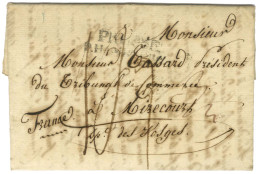 Monsieur
Monsieur Tassard Président
du Tribunal de Commerce
à Mirecourt
France
Dpt des Vosges